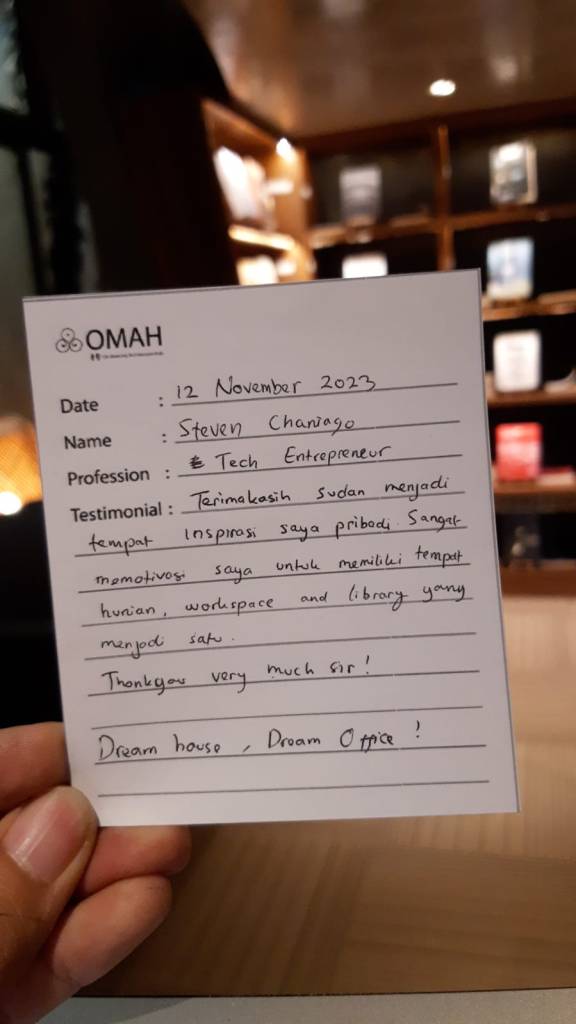 OMAH
Date : 12 November 2023
Name : Steven Chaniago
Profession : Tech Entrepreneur
Testimonial : Terimakasih sudah menjadi
tempat inspirasi saya pribadi. Sangat
memotivasi saya untuk memiliki tempat
hunian, workspace and library yang
menjadi satu.
Thankyou very much sir!
Dream house, Dream Office!